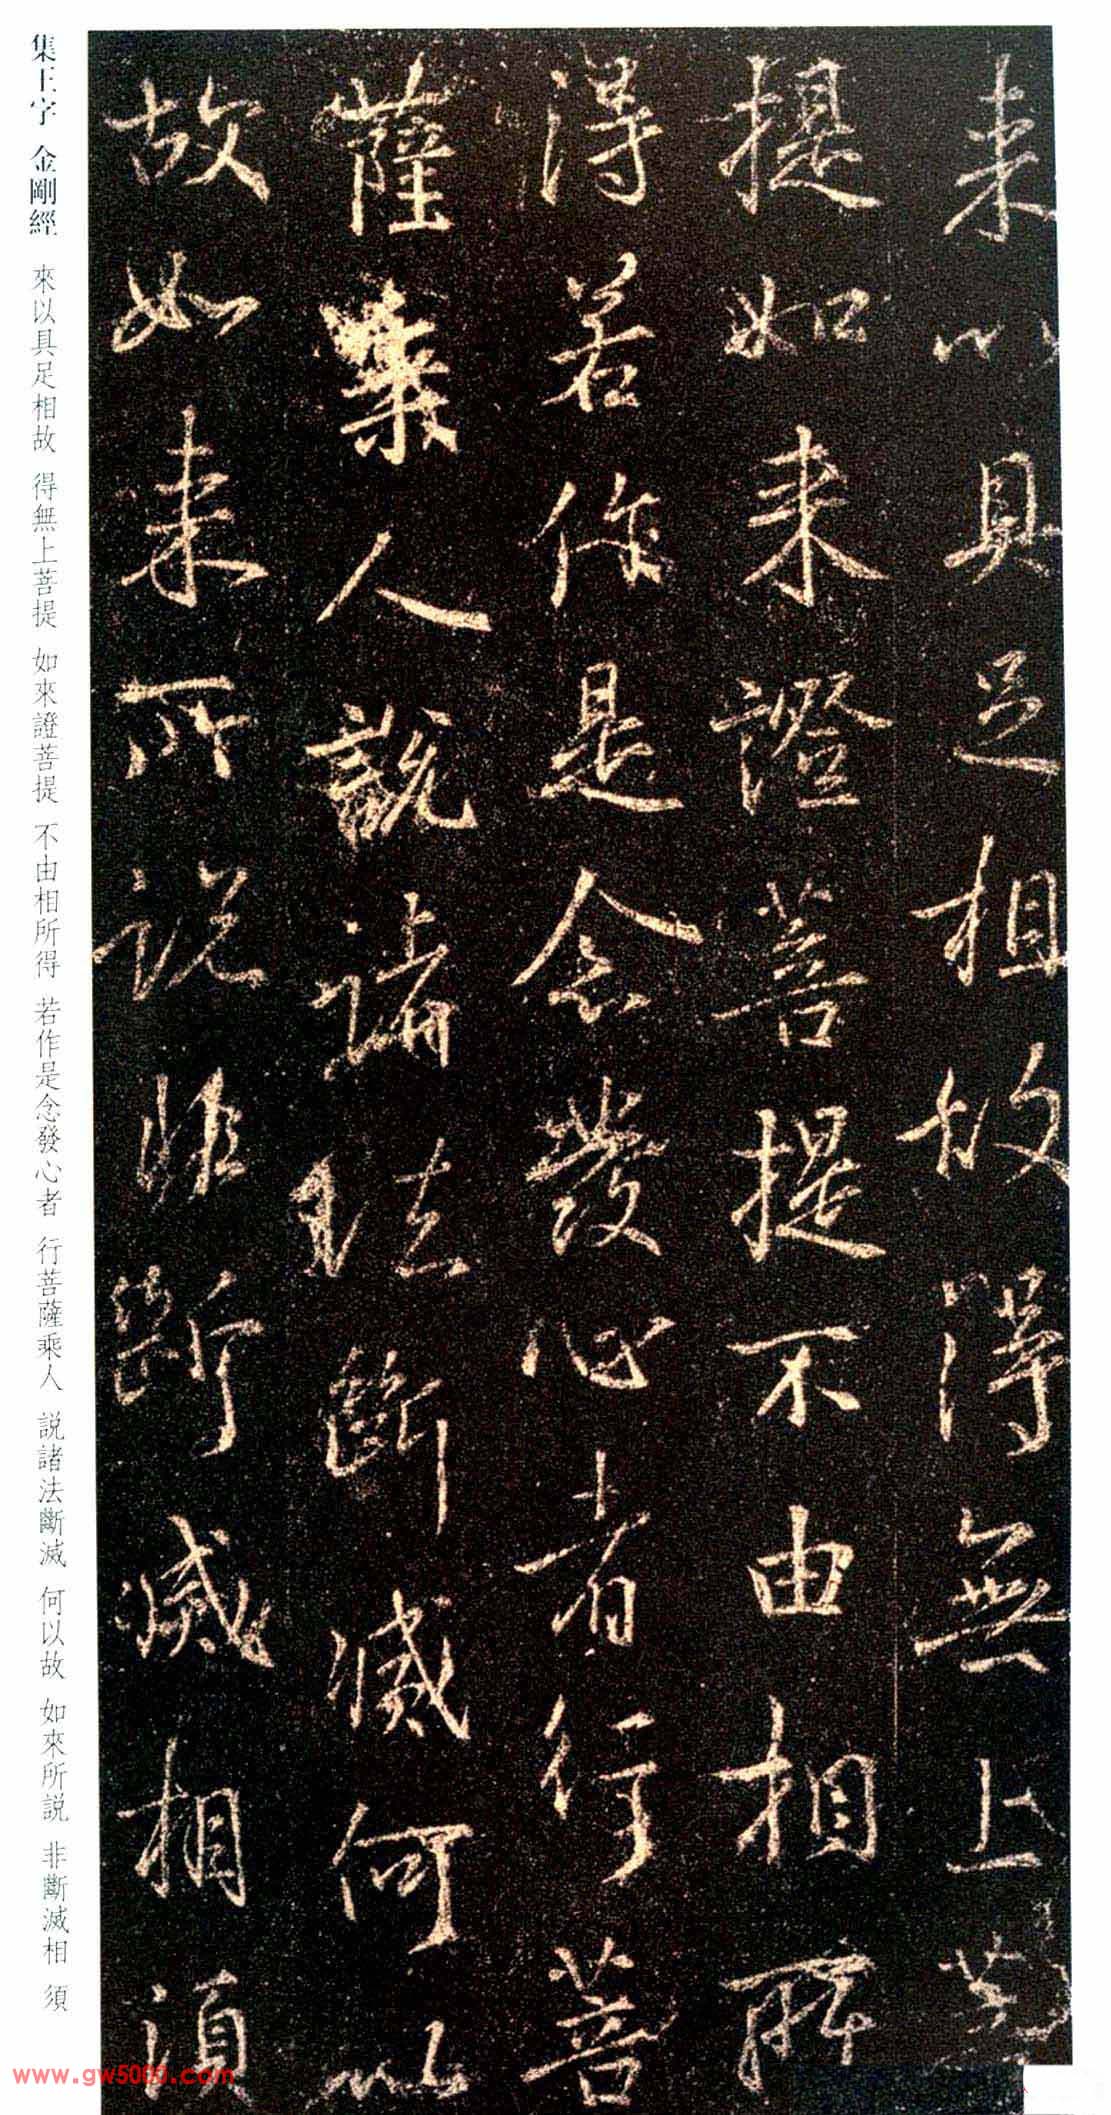 来以具足相故得無上菩
提如来證菩提不由相所
得若作是念發心者行菩
薩乘人說諸法斷滅何以
故如来所說非斷滅相須
集王字 金剛經 來以具足相故 得無上菩提 如來證菩提 不由相所得 若作是念發心者 行菩薩乘人 説諸法斷滅 何以故 如來所説 非斷滅相 須
www.gw5000.com